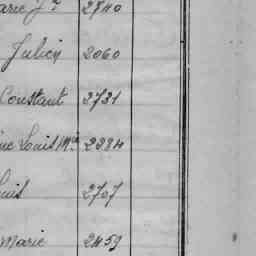 Marie J. 2740
Julien 2060
Constant 2731
Louis Mie 2284
Louis 2707
Marie 2459